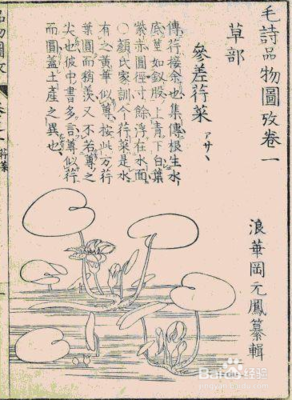 毛詩品物圖攷卷一
草部
浪華岡元鳳纂輯
參差荇菜
アサヽ
傳荇接余也集傳根生水
底莖如釵股上青下白葉
紫赤圓徑寸餘浮在水面
○顏氏家訓今荇菜是水
有之黄華似蓴按此方荇
葉圓而稍羨又不若蓴之
尖也彼中書多言蓴似荇
而圓蓋土產之異也
品物圖攷
Baidu经验
jingyan.baidu.com